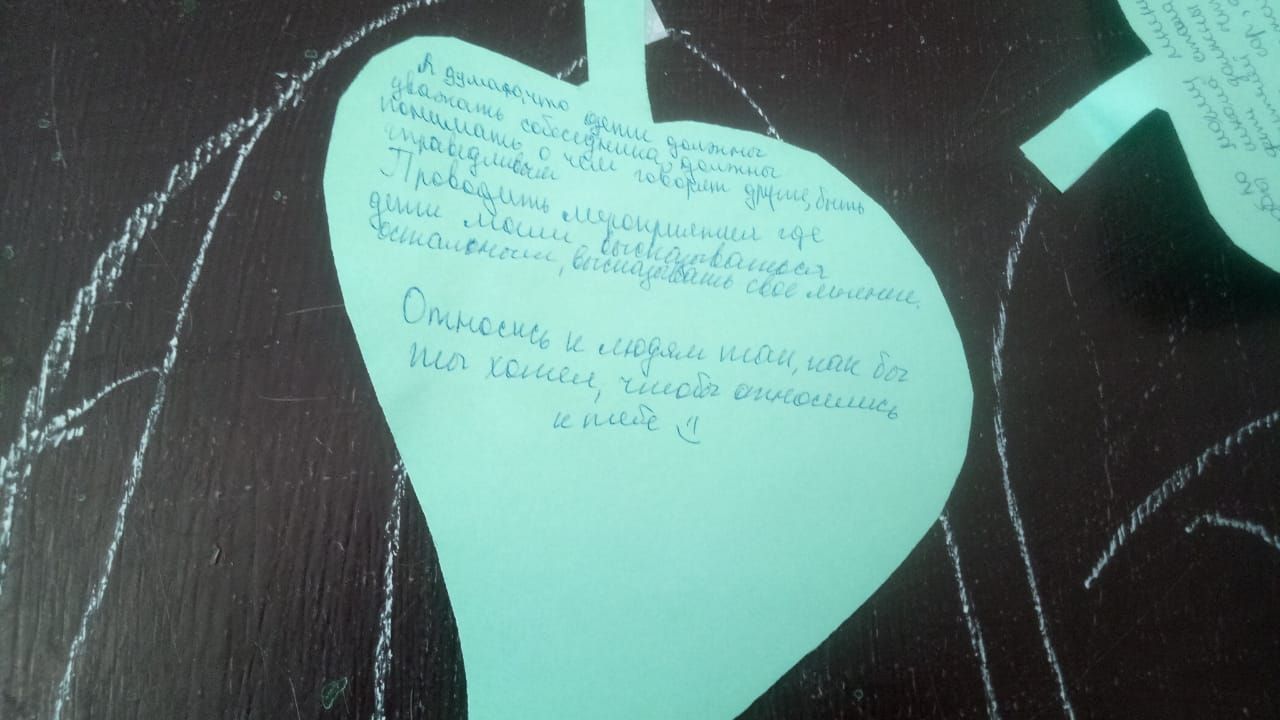 Я думаю, что дети должны
уважать собеседника, должны
понимать о чем говорят другие, быть
справедливым
Проводить мероприятия где
дети могли высказываться
остальным, высказывать свое мнение.
Относись к людям так, как бы
ты хотел, чтобы относились
к тебе :)